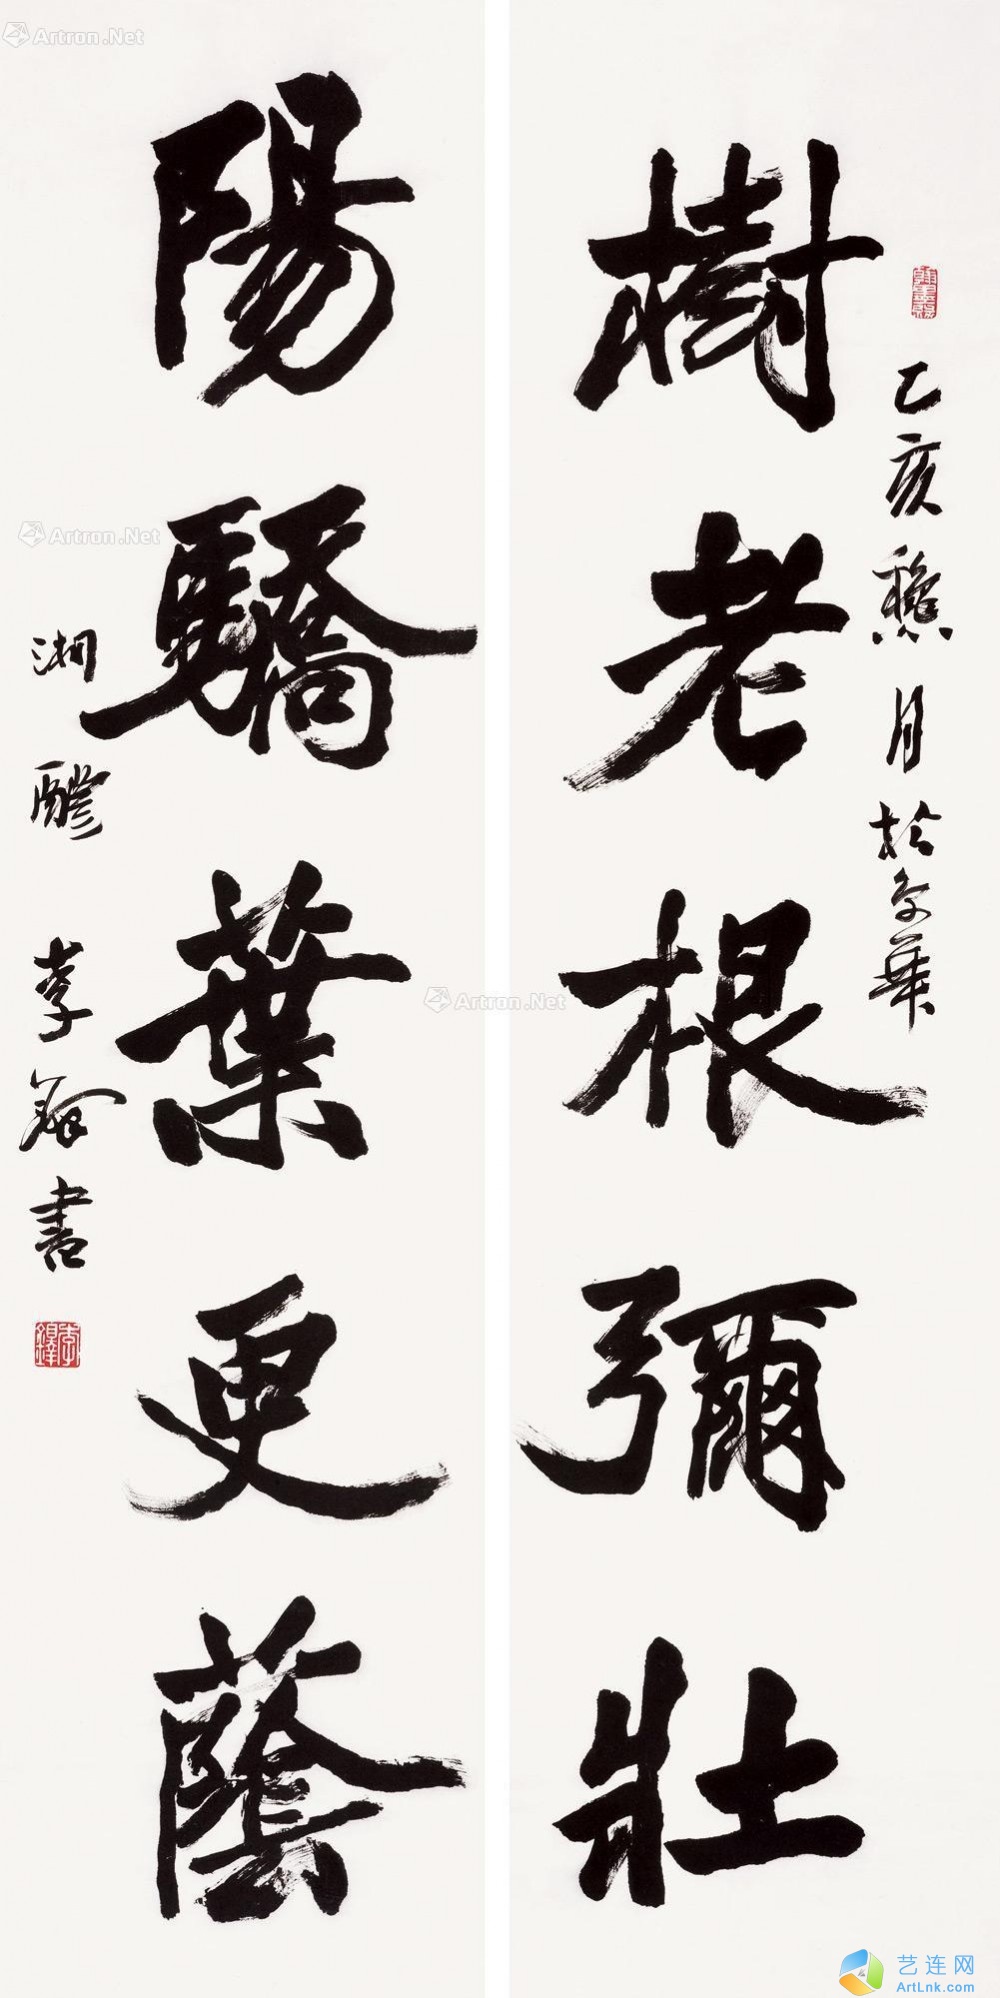 乙亥龝月於京華
樹老根彌壯
陽驕葉更蔭
湘醴李鐸書
李鐸
Artron.Net
Artron.Net
Artron.Net
艺连网
ArtLnk.com